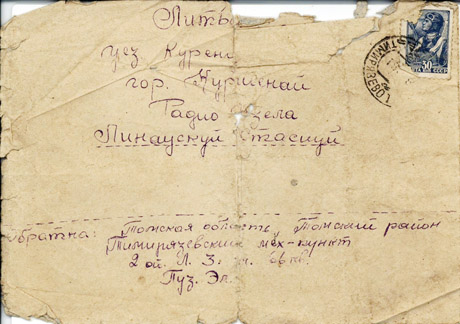 Литв
уез Курен
гор. Куршенай
Радио Узела
Линаускуй Стасиуй
Обратна: Томская область, Томский район
Тимирязевский мех-пункт
2 ой Л. З.
Пуз. Эл.
30
СССР